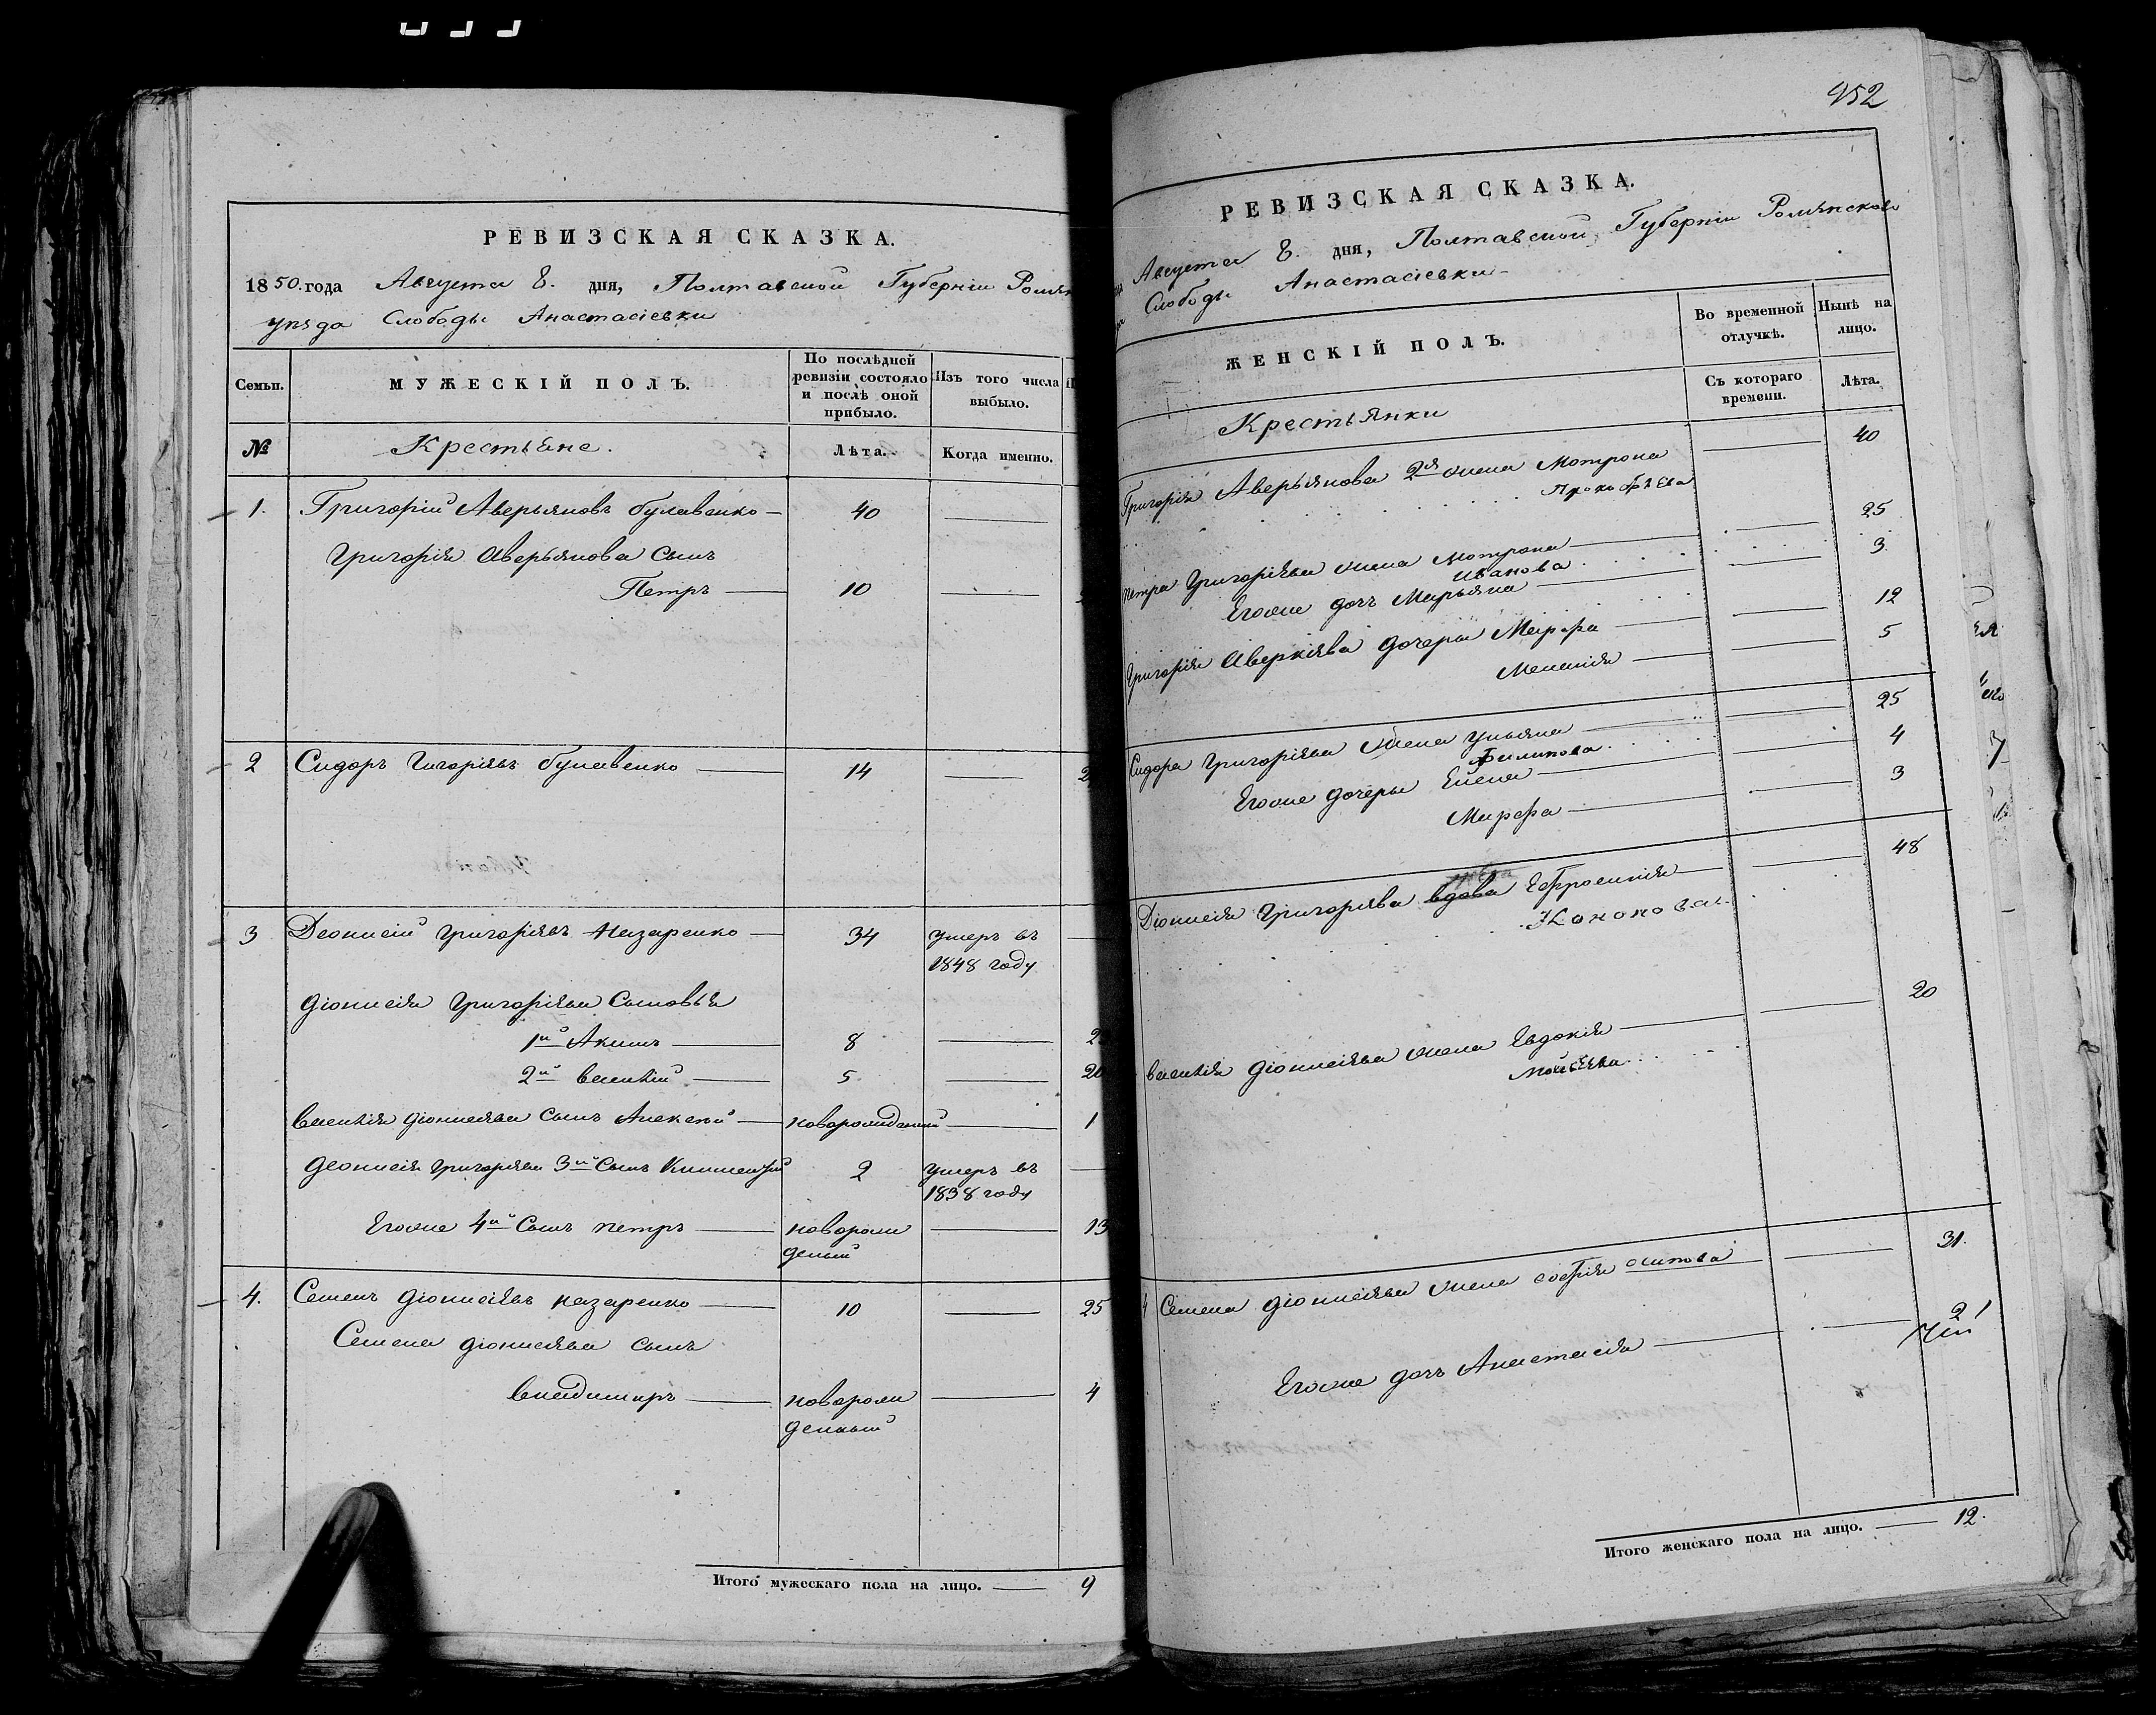 РЕВИЗСКАЯ СКАЗКА.
1850. года Августа 8. дня, Полтавской Губерніи
уѣзда Слободы Анастасіевки
Семьи.
МУЖЕСКІЙ ПОЛЪ.
По послѣдней ревизіи состояло и послѣ оной прибыло.
Изъ того числа выбыло.
№
Крестьяне.
Лѣта.
Когда именно.
1. Григорій Аверьяновъ булавенко — 40 —
Григорія Аверьянова Сынъ
Петръ — 10 —
2 Сидоръ Гигоріевъ булавенко — 14 —
3 Деонисій Григоріевъ Назаренко — 34 умеръ въ
1848 году
Діонисія Григоріева Сыновья
1й Акимъ — 8 —
2й василій — 5 — 20
василія Діонисіева сынъ Алексѣй — новорожденый — 1
Деонисія Григоріева 3й Сынъ 2 умеръ въ —
1838 году
Егоже 4й Сынъ петръ — новорож — 13
деный
4. Семенъ Діонисіевъ назаренко — 10 — 25
Семена Діонисіева сынъ
владимиръ — новорож — 4
денный
Итого мужескаго пола на лицо. — 9
952
РЕВИЗСКАЯ СКАЗКА.
Августа 8. дня, Полтавской Губерніи Роменскаго
Слободы Анастасіевки
ЖЕНСКІЙ ПОЛЪ.
Во временной отлучкѣ.
Нынѣ на лицо.
Крестьянки
Съ котораго времени.
Лѣта.
Григорія Аверьянова 2я жена Мотрона — 40
Прокофѣева
петра Григоріева жена Мотрона — 25
иванова
Егоже дочъ Марьяна — 3
Григорія Аверкіева дочеры Марфа — 12
Меланія — 5
Сидора Григоріева жена Ульяна — 25
Филипова
Егоже дочеры Елена — 4
Марфа — 3
Діонисія Григоріева вдова Ефросинія — 48
Кононова
василія Діонисіева жена Евдокія — 20
Моисѣева
4 Семена Діонисіева жена софія осипова — 31.
Егоже дочъ Анастасія —
Итого женскаго пола на лицо. — 12.